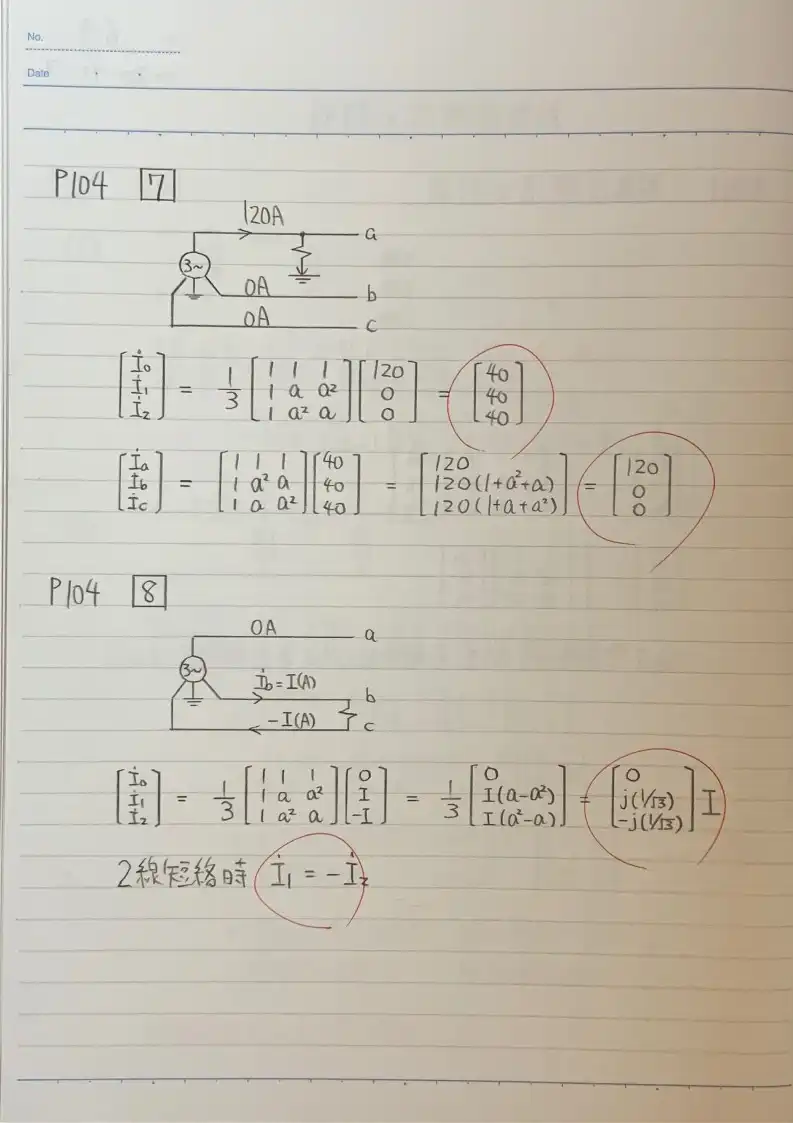 No.
Date
P104 7
120A
a
3~
0A
b
0A
c
[İ₀ İ₁ İ₂] = 1/3 [1 1 1 / 1 a a² / 1 a² a] [120 0 0] = [40 40 40]
[İa İb İc] = [1 1 1 / 1 a² a / 1 a a²] [40 40 40] = [120 / 120(1+a²+a) / 120(1+a+a²)] = [120 0 0]
P104 8
0A
a
3~
İb=I(A)
b
-I(A)
c
[İ₀ İ₁ İ₂] = 1/3 [1 1 1 / 1 a a² / 1 a² a] [0 I -I] = 1/3 [0 / I(a-a²) / I(a²-a)] = [0 / j(1/√3) / -j(1/√3)] I
2線短絡時 İ₁ = -İ₂